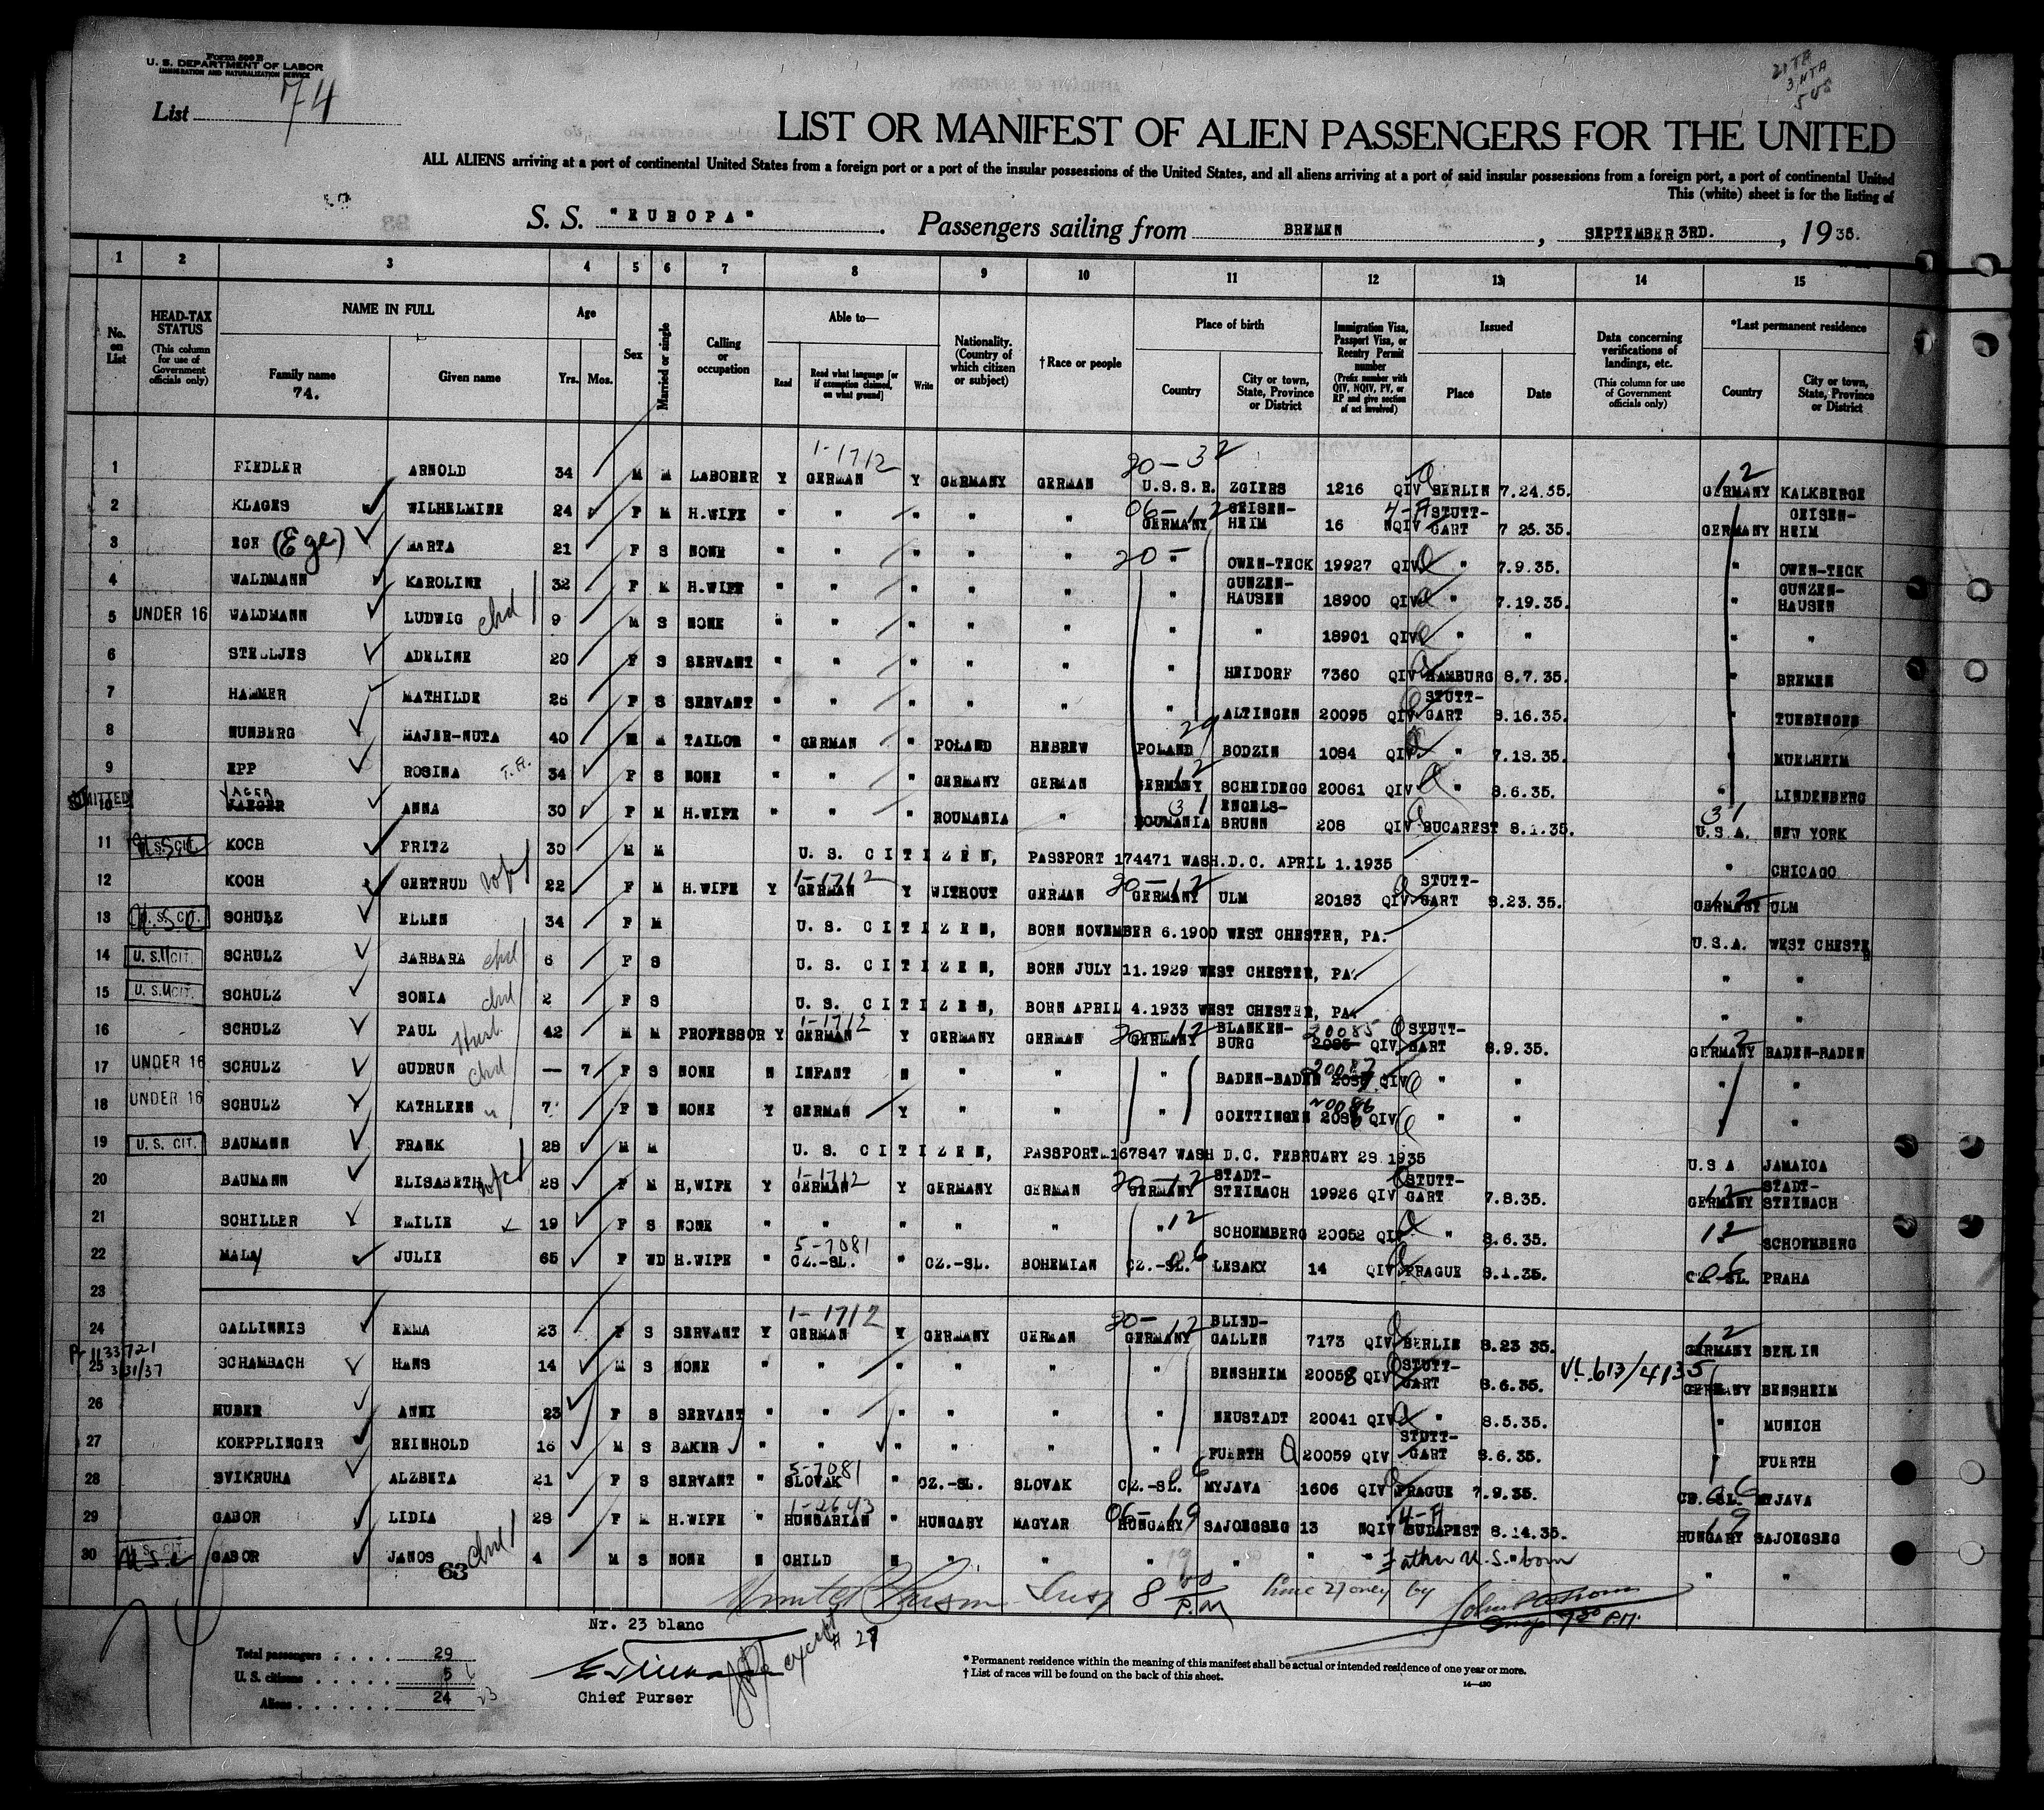 Form 500 B
U. S. DEPARTMENT OF LABOR
IMMIGRATION AND NATURALIZATION SERVICE
List 74
LIST OR MANIFEST OF ALIEN PASSENGERS FOR THE UNITED
ALL ALIENS arriving at a port of continental United States from a foreign port or a port of the insular possessions of the United States, and all aliens arriving at a port of said insular possessions from a foreign port, a port of continental United
This (white) sheet is for the listing of
S. S. "EUROPA". Passengers sailing from BREMEN, SEPTEMBER 3RD., 1935.
1 2 3 4 5 6 7 8 9 10 11 12 13 14 15
No. on List
HEAD-TAX STATUS (This column for use of Government officials only)
NAME IN FULL
Family name 74.
Given name
Age Yrs. Mos.
Sex
Married or single
Calling or occupation
Able to—
Read
Read what language [or if exemption claimed, on what ground]
Write
Nationality. (Country of which citizen or subject)
†Race or people
Place of birth
Country
City or town, State, Province or District
Immigration Visa, Passport Visa, or Reentry Permit number (Prefix number with QIV, NQIV, PV, or RP and give section of act involved)
Issued
Place
Date
Data concerning verifications of landings, etc. (This column for use of Government officials only)
*Last permanent residence
Country
City or town, State, Province or District
1 FIEDLER ARNOLD 34 M M LABORER Y 1-1712 GERMAN Y GERMANY GERMAN 20-32 U.S.S.R. ZGIERS 1216 QIV BERLIN 7.24.35. 12 GERMANY KALKBERGE
2 KLAGES WILHELMINE 24 F M H.WIFE " " " " " 06-12 GERMANY GEISENHEIM 16 NQIV STUTTGART 7 25.35. GERMANY GEISENHEIM
3 EGE (Ege) MARTA 21 F S NONE " " " " " 20- " OWEN-TECK 19927 QIV " 7.9.35. " OWEN-TECK
4 WALDMANN KAROLINE 32 F M H.WIFE " " " " " " GUNZENHAUSEN 18900 QIV " 7.19.35. " GUNZENHAUSEN
5 UNDER 16 WALDMANN LUDWIG chd 9 M S NONE " " " " " " " 18901 QIV " " " "
6 STELLJES ADELINE 20 F S SERVANT " " " " " " HEIDORF 7360 QIV HAMBURG 8.7.35. " BREMEN
7 HAMMER MATHILDE 26 F S SERVANT " " " " " " ALTINGEN 20095 QIV STUTTGART 8.16.35. " TUEBINGEN
8 NUNBERG MAJER-NUTA 40 M M TAILOR " GERMAN " POLAND HEBREW 29 POLAND BODZIN 1084 QIV " 7.18.35. " MUELHEIM
9 EPP ROSINA T.A. 34 F S NONE " " " GERMANY GERMAN 12 GERMANY SCHEIDEGG 20061 QIV " 8.6.35. " LINDENBERG
ADMITTED 10 JAEGER ANNA 30 F M H.WIFE " " " ROUMANIA " 31 ROUMANIA ENGELSBRUNN 208 QIV BUCAREST 8.1.35. 31 U.S.A. NEW YORK
11 U.S. CIT. KOCH FRITZ 30 M M U. S. CITIZEN, PASSPORT 174471 WASH.D.C. APRIL 1.1935 " CHICAGO
12 KOCH GERTRUD wife 22 F M H.WIFE Y 1-1712 GERMAN Y WITHOUT GERMAN 20-12 GERMANY ULM 20183 QIV STUTTGART 8.23.35. 12 GERMANY ULM
13 U. S. CIT. SCHULZ ELLEN 34 F M U. S. CITIZEN, BORN NOVEMBER 6.1900 WEST CHESTER, PA. U.S.A. WEST CHESTER
14 U. S. CIT. SCHULZ BARBARA chd 6 F S U. S. CITIZEN, BORN JULY 11.1929 WEST CHESTER, PA. " "
15 U. S. CIT. SCHULZ SONIA chd 2 F S U. S. CITIZEN, BORN APRIL 4.1933 WEST CHESTER, PA. " "
16 SCHULZ PAUL Husb. 42 M M PROFESSOR Y 1-1712 GERMAN Y GERMANY GERMAN 20-12 GERMANY BLANKENBURG 20085 2085 QIV STUTTGART 8.9.35. 12 GERMANY BADEN-BADEN
17 UNDER 16 SCHULZ GUDRUN chd — 7 F S NONE N INFANT N " " " BADEN-BADEN 20087 QIV " " " "
18 UNDER 16 SCHULZ KATHLEEN " 7 F S NONE Y GERMAN Y " " " GOETTINGEN 20086 QIV " " " "
19 U. S. CIT. BAUMANN FRANK 28 M M U. S. CITIZEN, PASSPORT 167847 WASH D.C. FEBRUARY 28 1935 U.S A JAMAICA
20 BAUMANN ELISABETH wife 28 F M H,WIFE Y 1-1712 GERMAN Y GERMANY GERMAN 20-12 GERMANY STADTSTEINACH 19926 QIV STUTTGART 7.8.35. 12 GERMANY STADTSTEINACH
21 SCHILLER EMILIE 19 F S NONE " " " " " " 12 SCHOEMBERG 20052 QIV " 8.6.35. 12 SCHOEMBERG
22 MALY JULIE 65 F WD H.WIFE " 5-7081 CZ.-SL. " CZ.-SL. BOHEMIAN CZ.-SL. 06 LESAKY 14 QIV PRAGUE 8.1.35. CZ-SL. PRAHA
23
24 GALLINNIS EMMA 23 F S SERVANT Y 1-1712 GERMAN Y GERMANY GERMAN 20-12 GERMANY BLINDGALLEN 7173 QIV BERLIN 8.23 35. 12 GERMANY BERLIN
1133721 3/31/37 25 SCHAMBACH HANS 14 M S NONE " " " " " " BENSHEIM 20058 QIV STUTTGART 8.6.35. V.L.613/4135 GERMANY BENSHEIM
26 HUBER ANNI 23 F S SERVANT " " " " " " NEUSTADT 20041 QIV " 8.5.35. " MUNICH
27 KOEPPLINGER REINHOLD 16 M S BAKER " " " " " " FUERTH 20059 QIV STUTTGART 8.6.35. " FUERTH
28 SVIKRUHA ALZBETA 21 F S SERVANT " 5-7081 SLOVAK " CZ.-SL. SLOVAK CZ.-SL. 06 MYJAVA 1606 QIV PRAGUE 7.9.35. CZ.-SL. MYJAVA
29 GABOR LIDIA 28 F M H.WIFE " 1-2643 HUNGARIAN " HUNGARY MAGYAR 06-19 HUNGARY SAJOEGSEG 13 NQIV BUDAPEST 8.14.35. 19 HUNGARY SAJOEGSEG
30 U. S. CIT. GABOR JANOS chd 4 M S NONE N CHILD N " " " 19 " " " Father U.S. born " "
63
8 00 P.M
Nr. 23 blanc
Total passengers 29
U. S. citizens 5
Aliens 24 23
Chief Purser
except # 27
* Permanent residence within the meaning of this manifest shall be actual or intended residence of one year or more.
† List of races will be found on the back of this sheet.
14—430